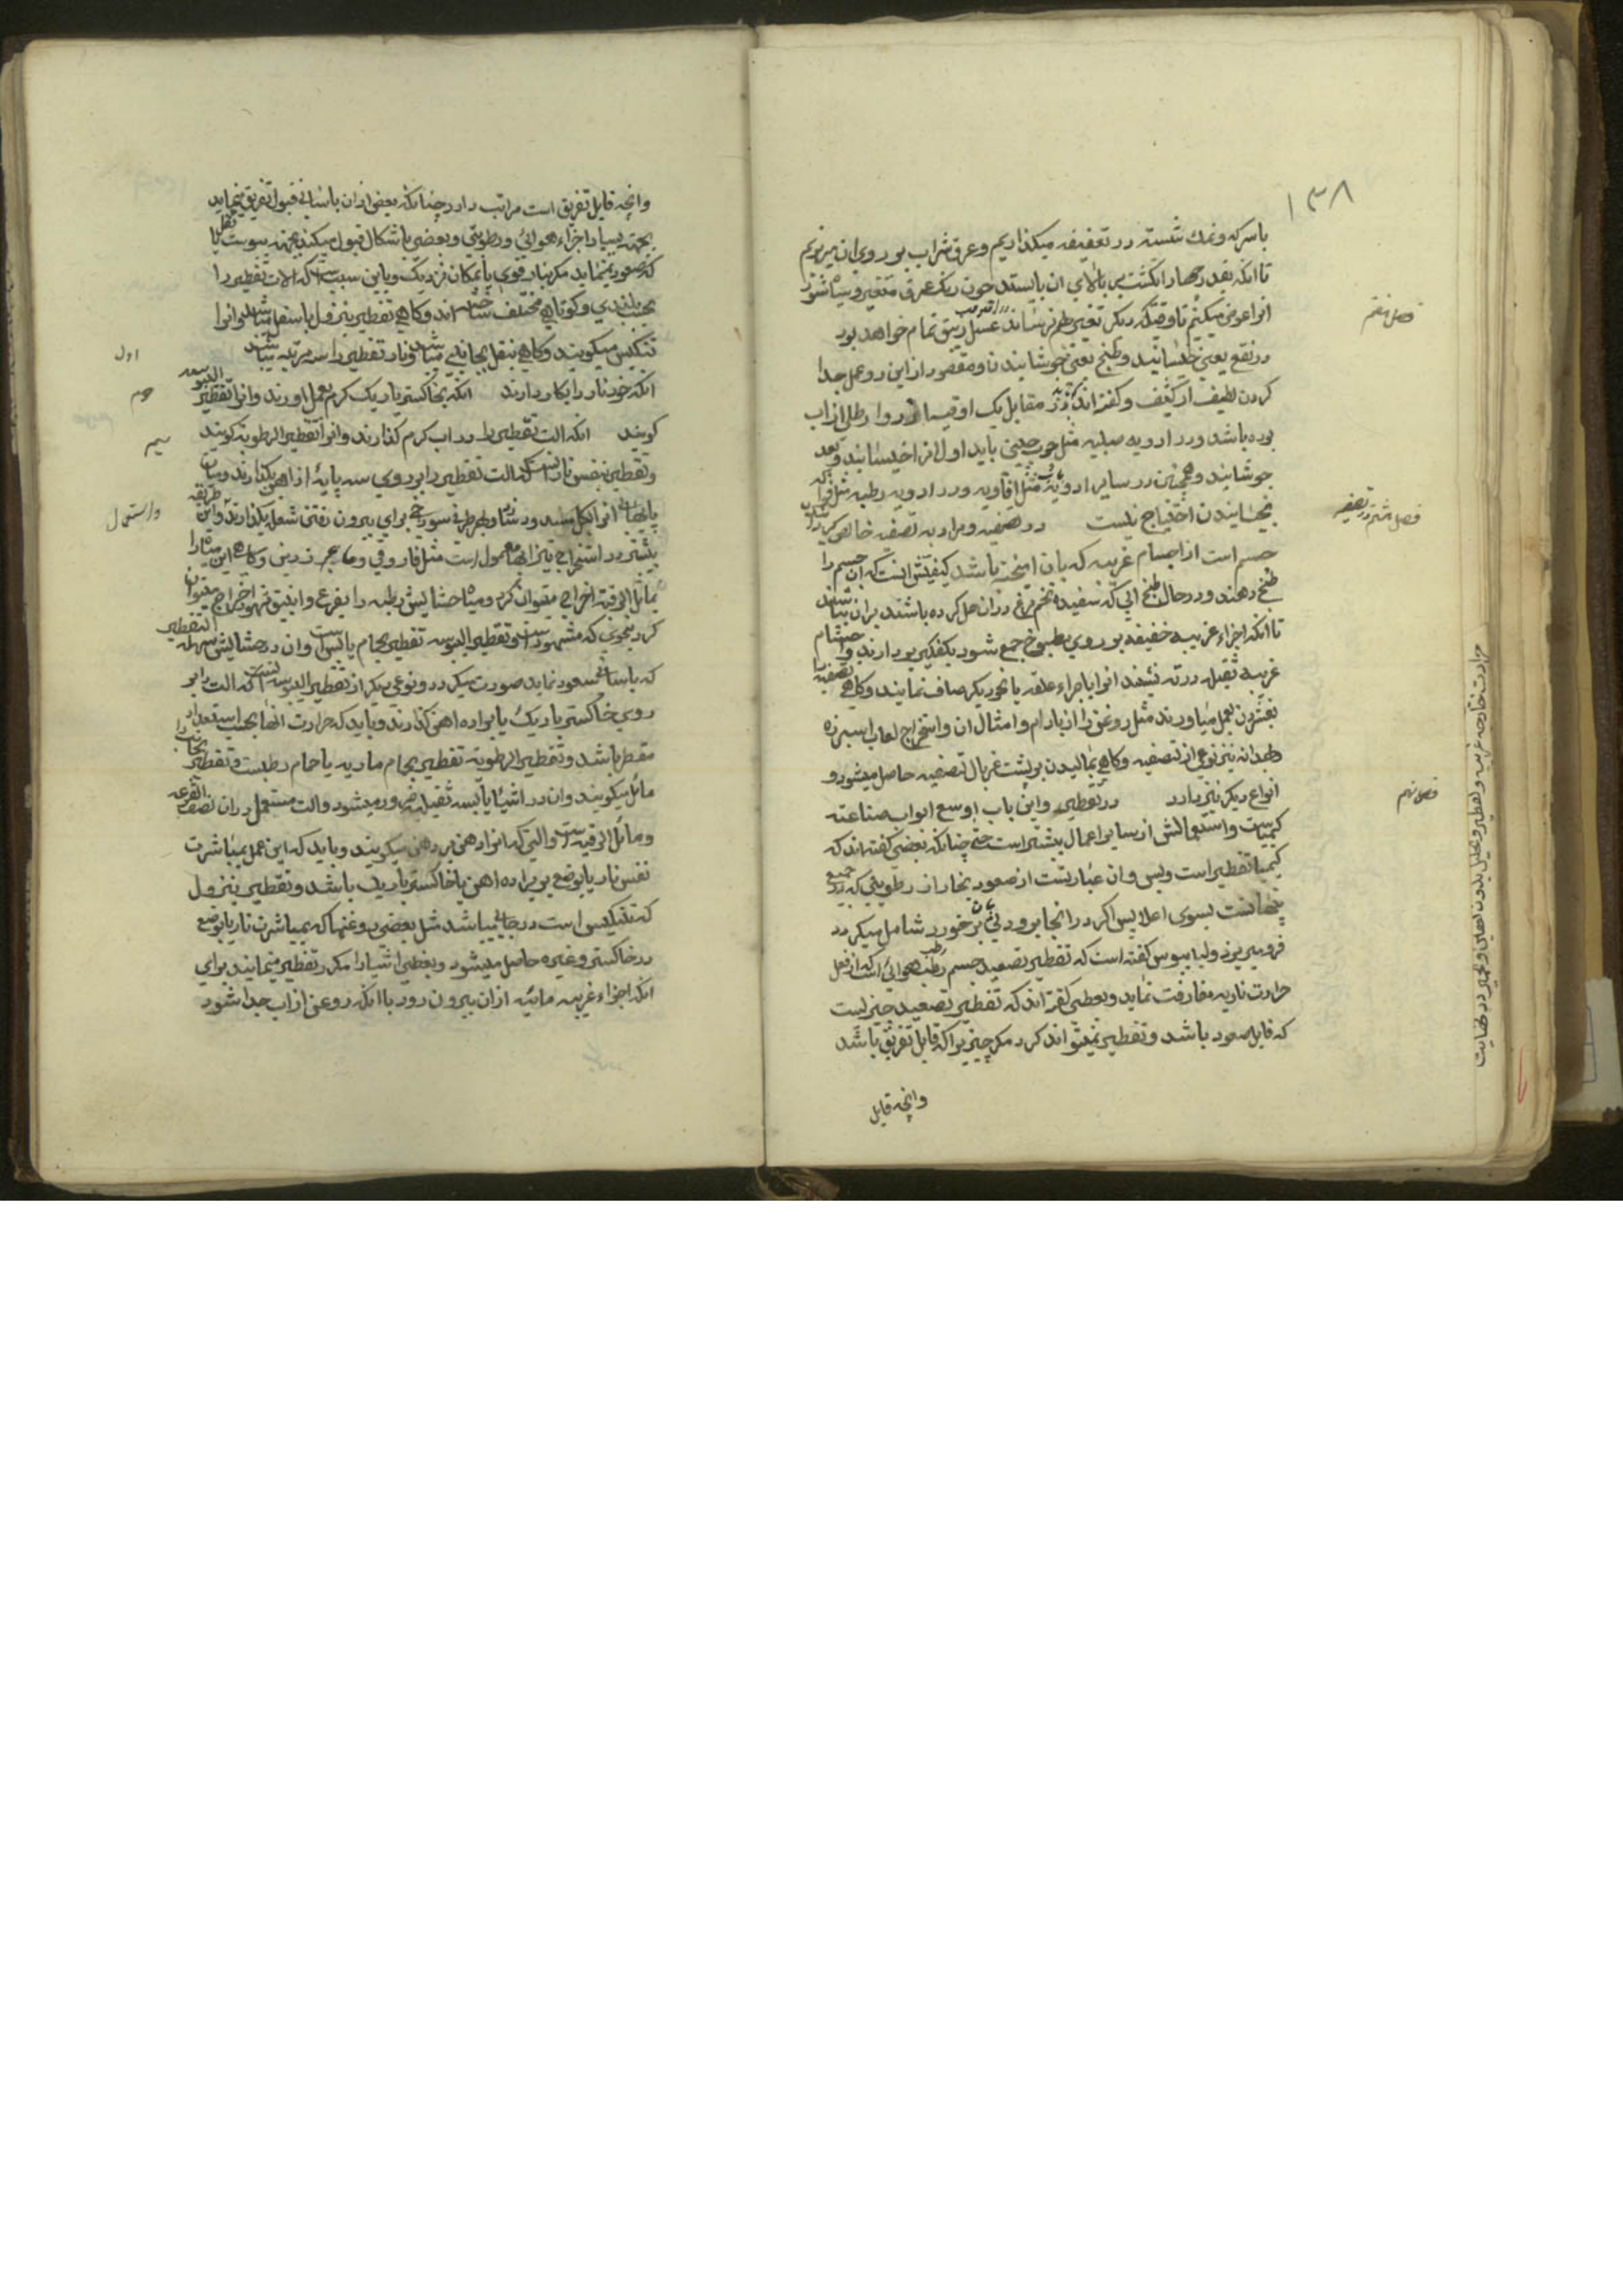 ۱۳۸
باسرکه و نمك شسته در تعفینفه میکذاریم و عرق شراب بر روی ان میریزیم
تا انکه بقدر چهار انکشت بر بالای ان بایستد چون رنك عرق متغیر و سیاه شود
انرا عوض میکنیم تا وقتیکه دیکر تغییر بهم نرساند عسل ریق تمام خواهد بود
فصل هفتم
در نقع یعنی خیسانید و طبخ یعنی جوشانیدن و مقصود از این دو عمل جدا
کردن لطیف از کثیف و کفته اند که در مقابل یک اوقیه از دوا رطلی از اب
بوده باشد و در ادویه صلبه مثل چوب چینی باید اول انرا خیسانید و بعد
جوشانید و همچنین در سایر ادویه مثل افاویه و در ادویه رطبه مثل فواکه
بخیسانیدن احتیاج نیست در تصفیه و مراد به تصفیه خالص کردن
فصل هشتم در تصفیه
جسم است از اجسام غریبه که بان امیخته باشد کیفیتش انست که ان جسم را
طبخ دهند و در حال طبخ ابی که سفیده تخم مرغ در ان حل کرده باشند بران بپاشند
تا انکه اجزاء غریبه خفیفه بر روی مطبوخ جمع شود بکفکیر بردارند و اجسام
غریبه ثقیله در ته نشیند انرا باجراء علقه یا نحو دیکر صاف نمایند و کاهی تصفیه را
بفشردن بعمل میاورند مثل روغن را از بادام و امثال ان و استخراج لعاب اسبرزه
و بهدانه نیز نوعی از تصفیه و کاهی بمالیدن بر پشت غربال تصفیه حاصل میشود و
انواع دیکر نیز دارد در تقطیر و این باب اوسع ابواب صناعته
فصل نهم
کیمیاست و استعمالش از سایر اعمال بیشتر است حتی چنانکه بعضی کفته اند که
کیمیا تقطیر است و بس و ان عبارتست از صعود بخار از رطوبتی که در جمیع
بسوی اعلا پس اکر در انجا برودتی بر خورد شامل میکردد
فرو میریزد و لیبابیوس کفته است که تقطیر تصعید جسم رطب هوائی است که از فعل
حرارت ناریه مفارقت نماید و بعضی کفته اند که تقطیر تصعید چیزیست
که قابل صعود باشد و تقطیر نمیتواند کرد مکر چیزیرا که قابل تفریق باشد
وانچه قابل
وانچه قابل تفریق است مراتب دارد چنانکه بعضی از ان باسانی قبول تفریق مینماید
بجهته بسیار اجزاء هوائی و رطوبتی و بعضی باشکال قبول میکند بجهته یبوست یا ثقل
که صعود نمینماید مکر بنار قوی یا بمکان نزدیک و باین سبب است که الات تقطیر را
بحسب بلندی و کوتاهی مختلف ساخته اند و کاهی تقطیر بنزول باسفل میباشد و انرا
تنکیس میکویند و کاهی بنقل بجانبی میباشد و نار تقطیر را سه مرتبه میباشد
اول
انکه خود نار را بکار دارند انکه بخاکستر باریک کرم بعمل اورند و انرا تقطیر الیبوسه
دوم
کویند انکه الت تقطیر را در اب کرم کذارند و انرا تقطیر الرطوبه کویند
سیم
و تقطیر بنفس نار انست که الت تقطیر را بر روی سه پایه از اهن بکذارند و میان
پایها انرا بکل بکیرند و در میان هر طرف سوراخی برای بیرون رفتن شعله بکذارند و این طریقه
واستعمال
بیشتر در استخراج تیزابها معمول است مثل فاروقی و ماء عجر زرنی و کاهی این میاه را
بمائل الرقبه اخراج میتوان کرد و میاه حشایش رطبه را بقرع و انبیق اخراج میتوان
کرد بنحوی که مشهور است و تقطیر الیبوسه تقطیر بحمام یابس است و ان در حشایش سهله التقطیر
که باسانی صعود نماید صورت میکیرد و نوعی دیکر از تقطیر الیبوسه انست که الت را بر
روی خاکستر باریک یا براده اهن کذارند و باید که حرارت انها بحسب استعداد
مقطر باشد و تقطیر الرطوبه تقطیر بحمام ماریه یا حمام رطبست و تقطیر بجانب را
مائل میکویند و ان در اشیاء یابسه ثقیله ضرور میشود و الت مستعمل در ان نصف القرعه
و مائل الرقبه است و التی که انرا دهن در دهن میکویند و باید که این عمل بمباشرت
نفس نار یا بوضع بر براده اهن یا خاکستر باریک باشد و تقطیر بنزول
که تنکیس است در جائی میباشد مثل بعضی روغنها که بمباشرت نار یا بوضع
در خاکستر و غیره حاصل میشود و بعضی اشیا را مکرر تقطیر مینمایند برای
انکه اجزاء غریبه مائیه از ان بیرون رود یا انکه روغن از اب جدا شود